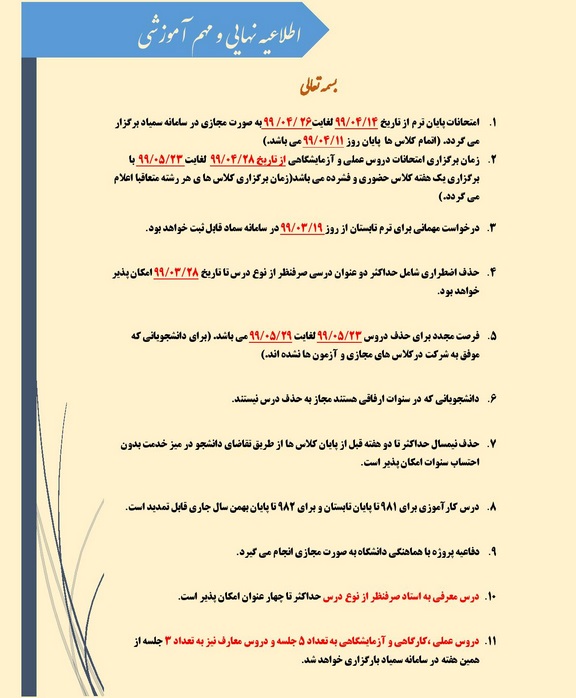 اطلاعیه نهایی و مهم آموزشی
بسمه تعالی
۱. امتحانات پایان ترم از تاریخ ۹۹/۰۴/۱۴ لغایت ۹۹/۰۴/۲۶ به صورت مجازی در سامانه سمیاد برگزار
می گردد. (اتمام کلاس ها پایان روز ۹۹/۰۴/۱۱ می باشد.)
۲. زمان برگزاری امتحانات دروس عملی و آزمایشگاهی از تاریخ ۹۹/۰۴/۲۸ لغایت ۹۹/۰۵/۲۳ با
برگزاری یک هفته کلاس حضوری و فشرده می باشد(زمان برگزاری کلاس ها ی هر رشته متعاقبا اعلام
می گردد.)
۳. درخواست مهمانی برای ترم تابستان از روز ۹۹/۰۳/۱۹ در سامانه سماد قابل ثبت خواهد بود.
۴. حذف اضطراری شامل حداکثر دو عنوان درسی صرفنظر از نوع درس تا تاریخ ۹۹/۰۳/۲۸ امکان پذیر
خواهد بود.
۵. فرصت مجدد برای حذف دروس ۹۹/۰۵/۲۳ لغایت ۹۹/۰۵/۲۹ می باشد. (برای دانشجویانی که
موفق به شرکت درکلاس های مجازی و آزمون ها نشده اند.)
۶. دانشجویانی که در سنوات ارفاقی هستند مجاز به حذف درس نیستند.
۷. حذف نیمسال حداکثر تا دو هفته قبل از پایان کلاس ها از طریق تقاضای دانشجو در میز خدمت بدون
احتساب سنوات امکان پذیر است.
۸. درس کارآموزی برای ۹۸۱ تا پایان تابستان و برای ۹۸۲ تا پایان بهمن سال جاری قابل تمدید است.
۹. دفاعیه پروژه با هماهنگی دانشگاه به صورت مجازی انجام می گیرد.
۱۰. درس معرفی به استاد صرفنظر از نوع درس حداکثر تا چهار عنوان امکان پذیر است.
۱۱. دروس عملی ،کارگاهی و آزمایشگاهی به تعداد ۵ جلسه و دروس معارف نیز به تعداد ۳ جلسه از
همین هفته در سامانه سمیاد بارگزاری خواهد شد.